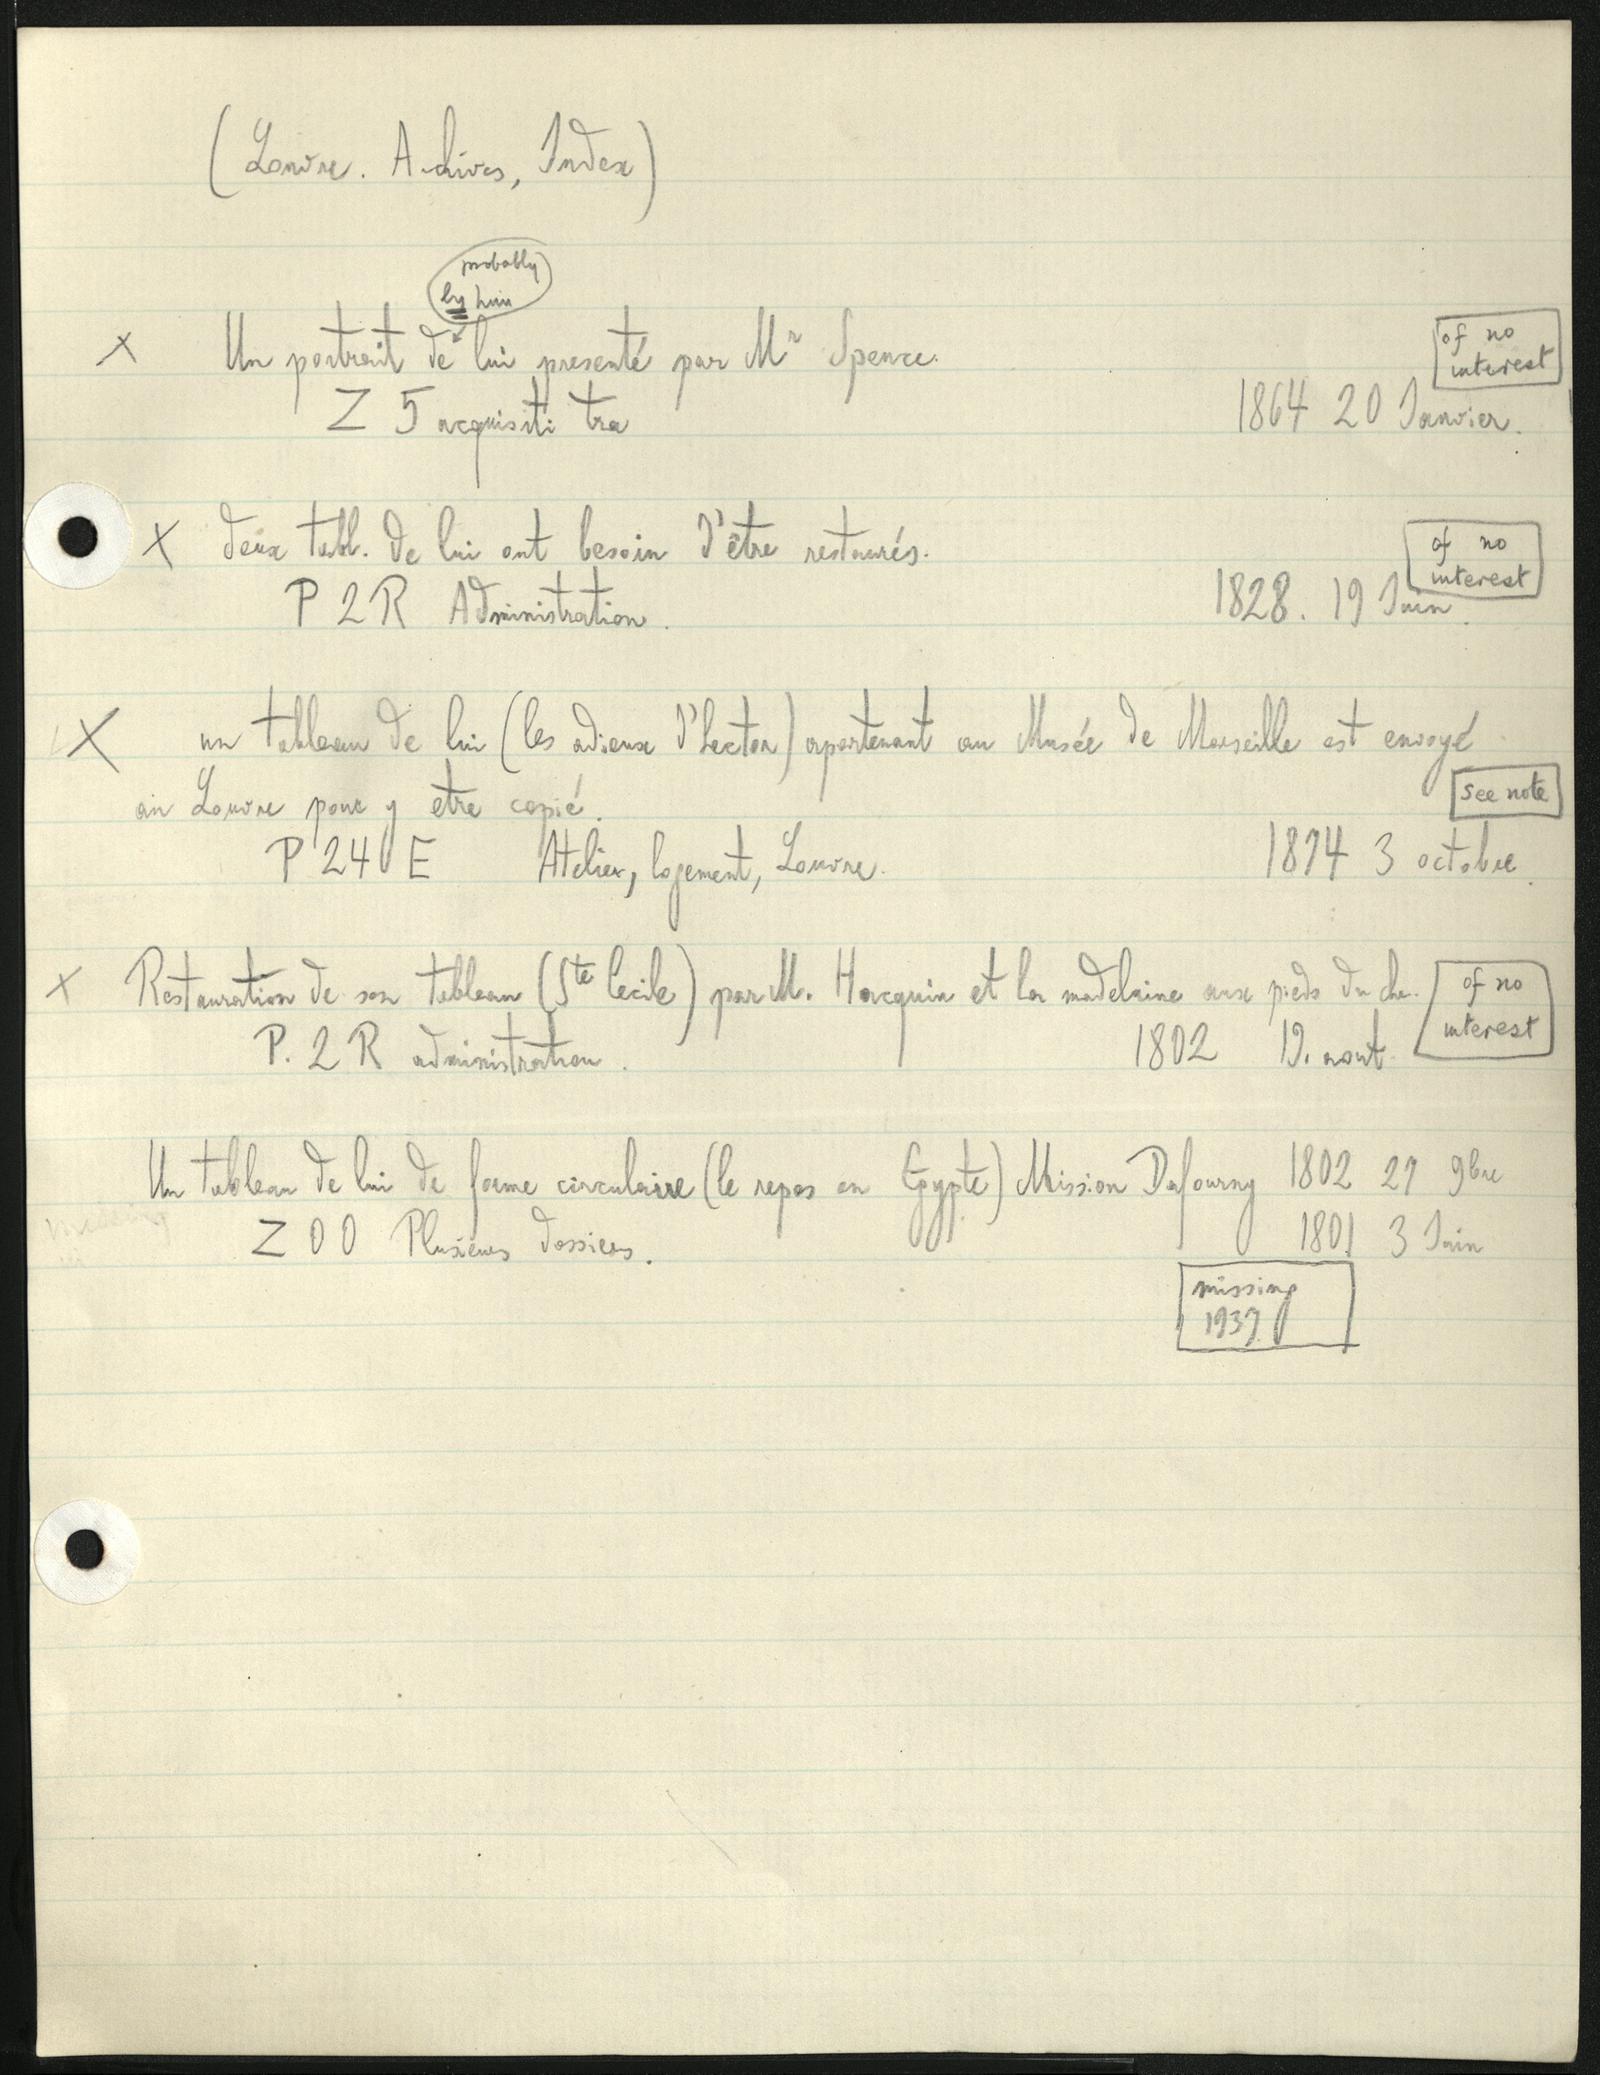 (Louvre. Archives, Index)
probably
by him
X Un portrait de lui presenté par Mr Spence.
of no
interest
Z 5 acquisiti tra 1864 20 Janvier.
X deux tabl. de lui ont besoin d'être restaurés.
of no
interest
P 2 R Administration. 1828. 19 Juin.
X un tableau de lui (les adieux d'Hector) apartenant au Musée de Marseille est envoyé
au Louvre pour y etre copié.
see note
P 24 E Atelier, logement, Louvre. 1874 3 octobre.
X Restauration de son tableau (Ste Cecile) par M. Hacquin et la madelaine aux pieds du ch.
of no
interest
P. 2 R administration. 1802 19. aout.
Un tableau de lui de forme circulaire (le repos en Egypte) Mission Dufourny 1802 27 9bre
missing
Z 00 Plusieurs dossiers. 1801 3 Juin
missing
1937